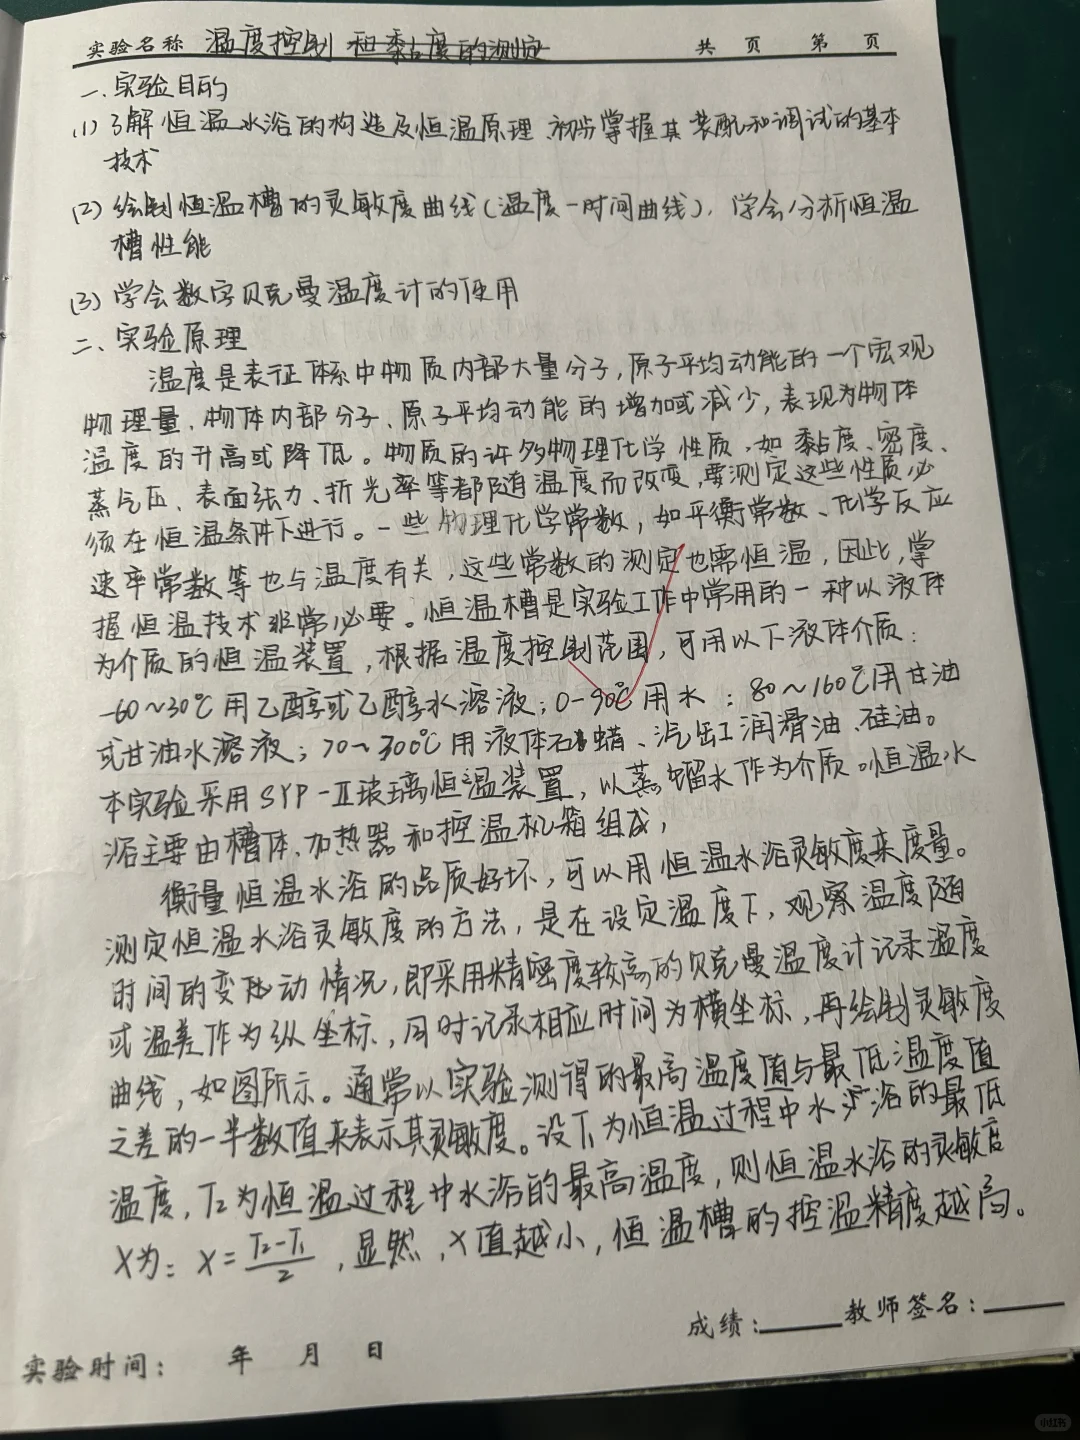 实验名称 温度控制和黏度的测定 共 页 第 页
一、实验目的
(1) 了解恒温水浴的构造及恒温原理 初步掌握其装配和调试的基本
技术
(2) 绘制恒温槽的灵敏度曲线(温度-时间曲线),学会分析恒温
槽性能
(3) 学会数字贝克曼温度计的使用
二、实验原理
温度是表征体系中物质内部大量分子,原子平均动能的一个宏观
物理量、物体内部分子、原子平均动能的增加或减少,表现为物体
温度的升高或降低。物质的许多物理化学性质,如黏度、密度、
蒸气压、表面张力、折光率等都随温度而改变,要测定这些性质必
须在恒温条件下进行。一些物理化学常数,如平衡常数、化学反应
速率常数等也与温度有关,这些常数的测定也需恒温,因此,掌
握恒温技术非常必要。恒温槽是实验工作中常用的一种以液体
为介质的恒温装置,根据温度控制范围,可用以下液体介质:
-60~30℃用乙醇或乙醇水溶液;0-90℃用水:80~160℃用甘油
或甘油水溶液;70~300℃用液体石蜡、汽缸润滑油、硅油。
本实验采用SYP-Ⅱ玻璃恒温装置,以蒸馏水作为介质。恒温水
浴主要由槽体、加热器和控温机箱组成,
衡量恒温水浴的品质好坏,可以用恒温水浴灵敏度来度量。
测定恒温水浴灵敏度的方法,是在设定温度下,观察温度随
时间的变动情况,即采用精密度较高的贝克曼温度计记录温度
或温差作为纵坐标,同时记录相应时间为横坐标,再绘制灵敏度
曲线,如图所示。通常以实验测得的最高温度值与最低温度值
之差的一半数值来表示其灵敏度。设T₁为恒温过程中水浴的最低
温度,T₂为恒温过程中水浴的最高温度,则恒温水浴的灵敏度
X为: X=(T₂-T₁)/2,显然,X值越小,恒温槽的控温精度越高。
成绩: 教师签名:
实验时间: 年 月 日
小红书